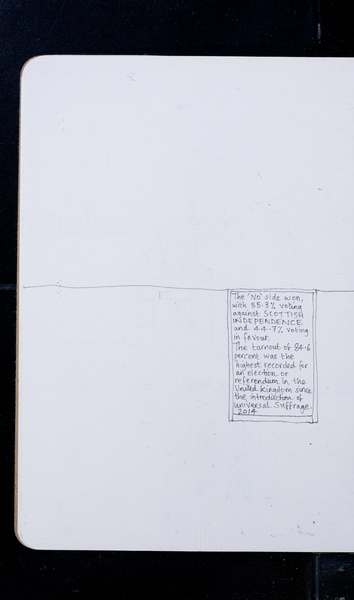 The 'NO' side won,
with 55.3% voting
against SCOTTISH
INDEPENDENCE
and 44.7% voting
in favour.
The turnout of 84.6
percent was the
highest recorded for
an election or
referendum in the
United Kingdom since
the introduction of
universal Suffrage.
2014